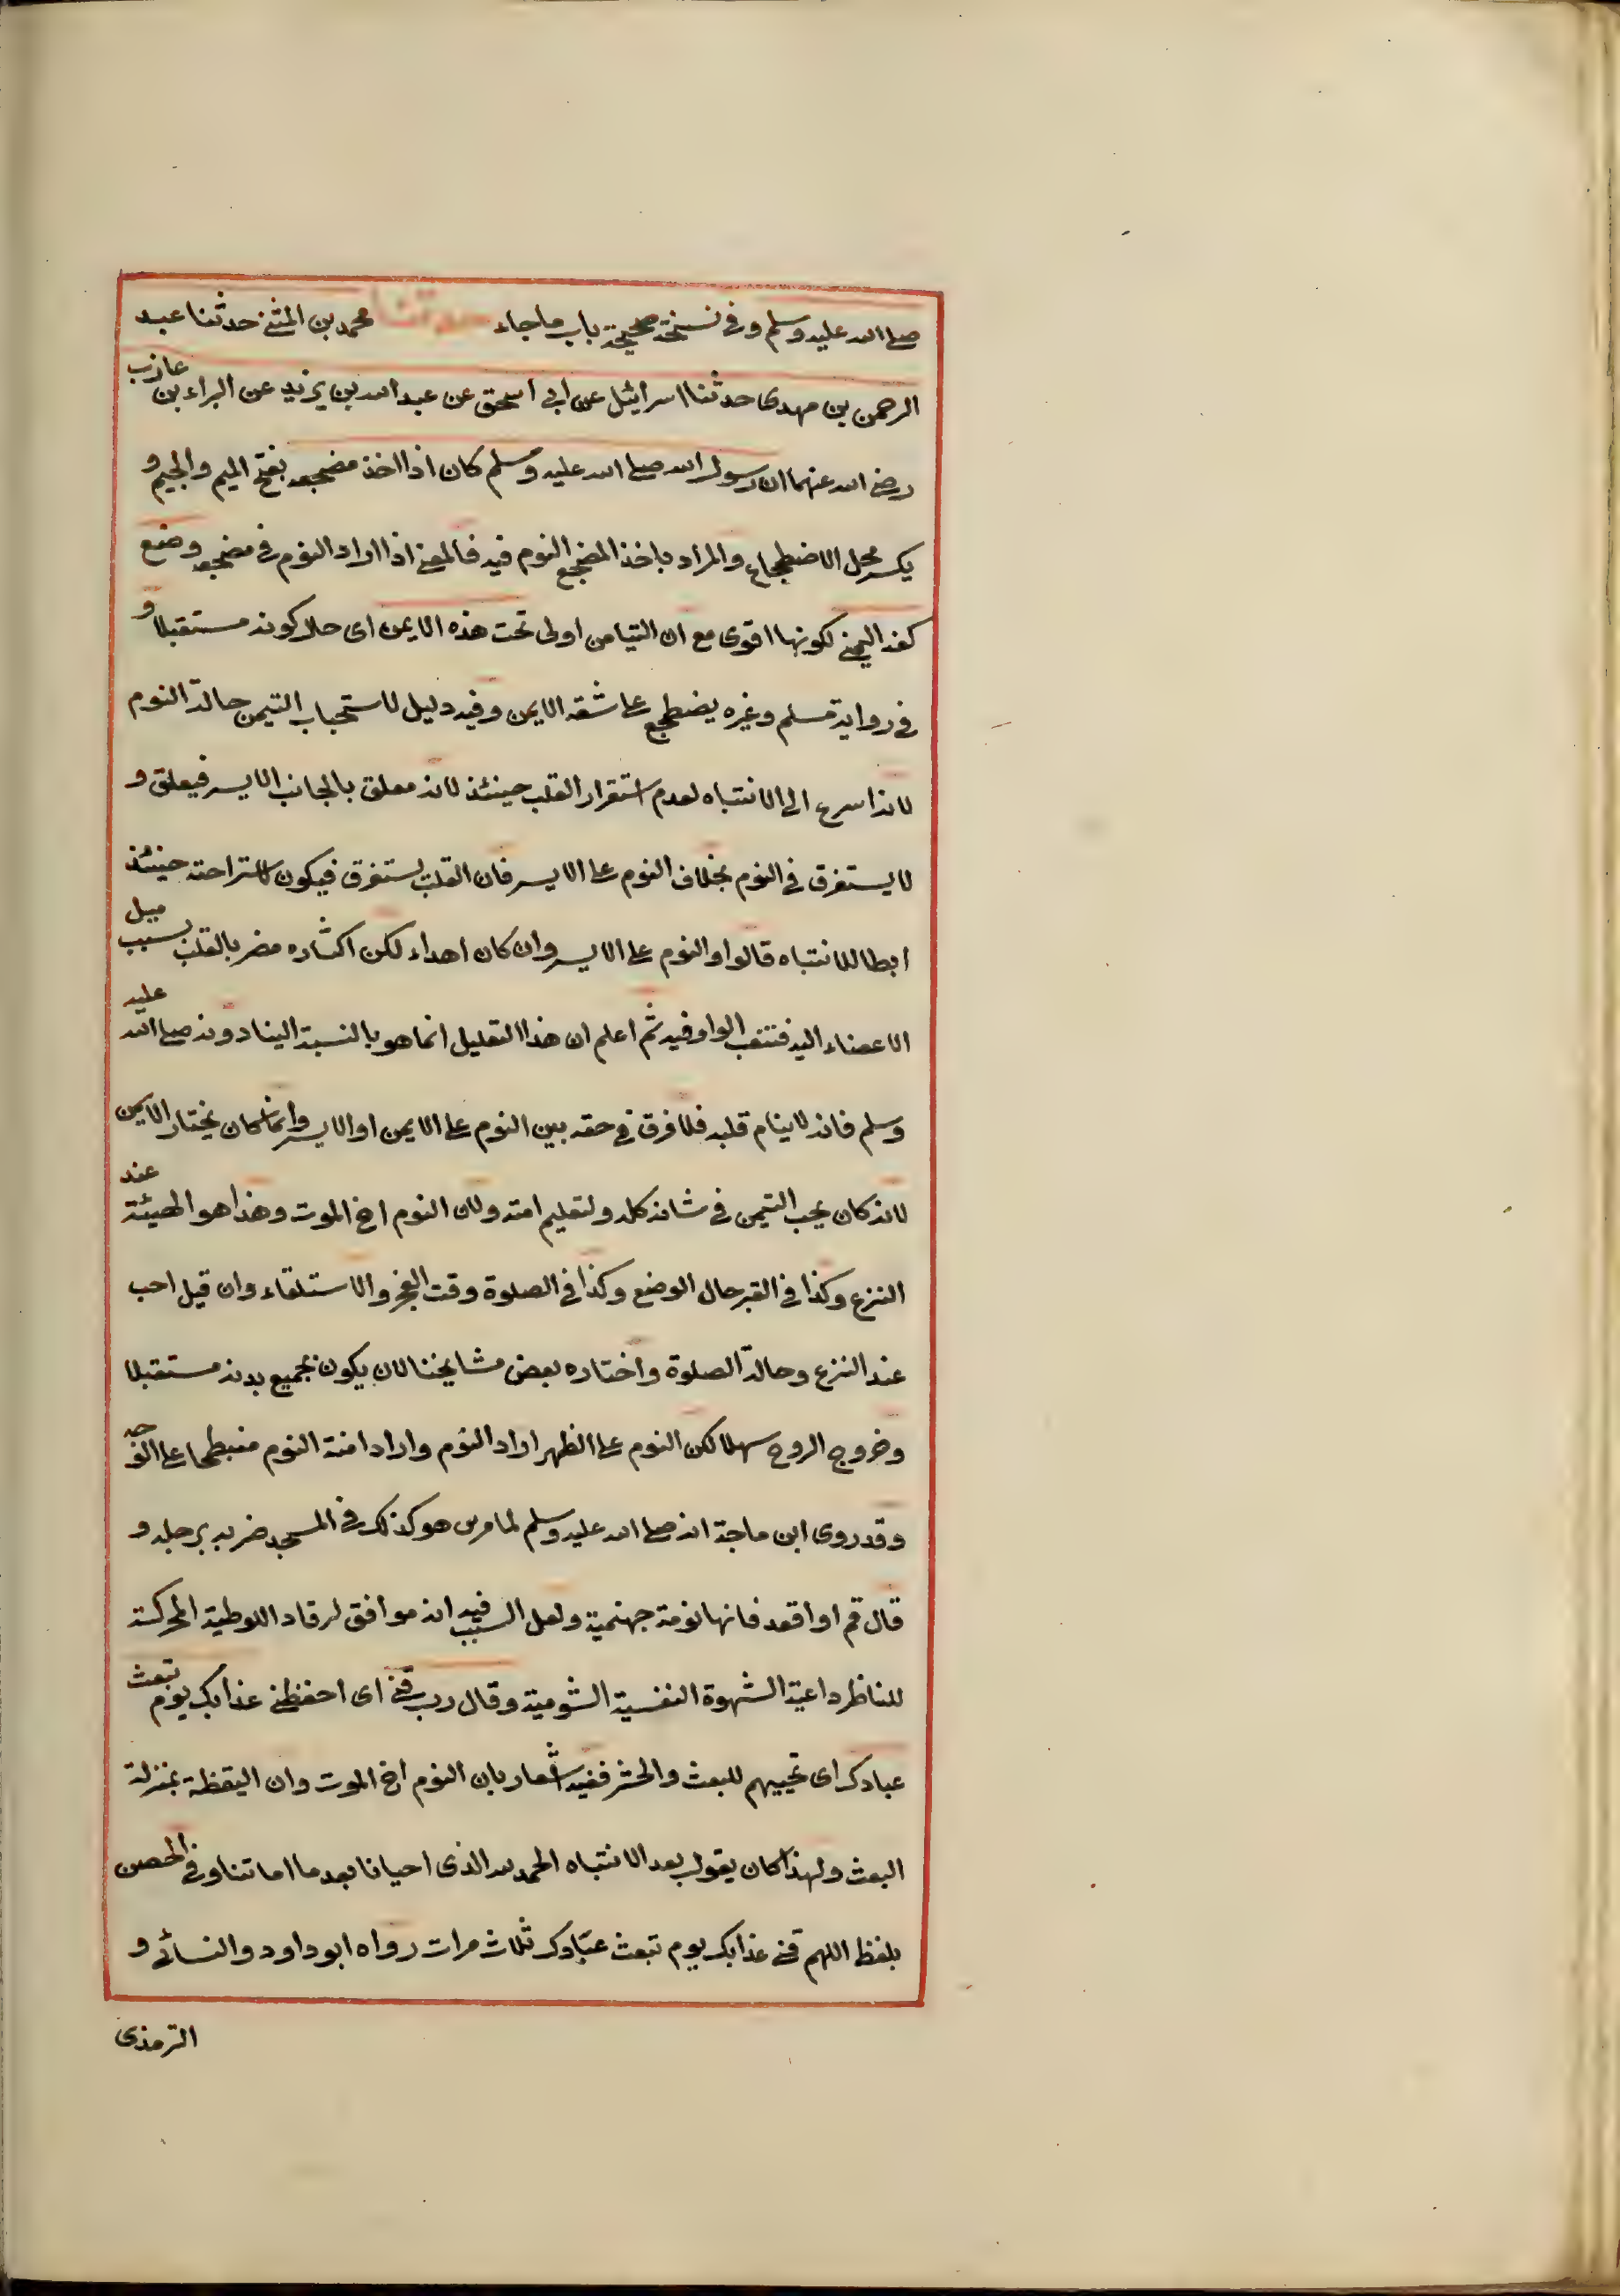 صلى الله عليه وسلم وفى نسخة صحيحة باب ماجاء حدثنا محمد بن المثنى حدثنا عبد
الرحمن بن مهدى حدثنا اسرائيل عن ابى اسحق عن عبد الله بن يزيد عن البراء بن عازب
رضى الله عنهما ان رسول الله صلى الله عليه وسلم كان اذا اخذ مضجعه بفتح الميم والجيم و
يكسر محل الاضطجاع والمراد باخذ المضجع النوم فيه فالمعنى اذا اراد النوم فى مضجعه وضع
كفه اليمنى لكونها اقوى مع ان التيامن اولى تحت خده الايمن اى حال كونه مستقبلا و
فى رواية مسلم وغيره يضطجع على شقه الايمن وفيه دليل لاستحباب التيمن حالة النوم
لانه اسرع الى الانتباه لعدم استقرار القلب حينئذ لانه معلق بالجانب الايسر فيعلق و
لا يستغرق فى النوم بخلاف النوم على الايسر فان القلب يستغرق فيكون لاستراحته حينئذ
ابطا للانتباه قالوا والنوم على الايسر وان كان اهداء لكن اكثاره مضر بالقلب بسبب ميل
الاعضاء اليه فتنصب الواو فيه ثم اعلم ان هذا التعليل انما هو بالنسبة الينا دونه صلى الله عليه
وسلم فانه لا ينام قلبه فلا فرق فى حقه بين النوم على الايمن او الايسر وانما كان يختار الايمن
لانه كان يحب التيمن فى شانه كله ولتعليم امته ولان النوم اخ الموت وهذا هو الهيئة عند
النزع وكذا فى القبر حال الوضع وكذا فى الصلوة وقت العجز والاستلقاء وان قيل احب
عند النزع وحالة الصلوة واختاره بعض مشايخنا لان يكون بجميع بدنه مستقبلا
وخروج الروح سهلا لكن النوم على الظهر اراد النوم واراد امنة النوم منبطحا على الوجه
وقد روى ابن ماجة انه صلى الله عليه وسلم لما مر من هو كذلك فى المسجد ضربه برجله و
قال قم او اقعد فانها نومة جهنمية ولعل السبب فيه انه موافق لرقاد اللوطية المحركة
للناظر داعية الشهوة النفسية الشومية وقال رب قنى اى احفظنى عذابك يوم تبعث
عبادك اى تحييهم للبعث والحشر ففيه اشعار بان النوم اخ الموت وان اليقظة بمنزلة
البعث ولهذا كان يقول بعد الانتباه الحمد لله الذى احيانا بعد ما اماتنا وفى الحصن
بلفظ اللهم قنى عذابك يوم تبعث عبادك ثلاث مرات رواه ابو داود والنسائى و
الترمذى